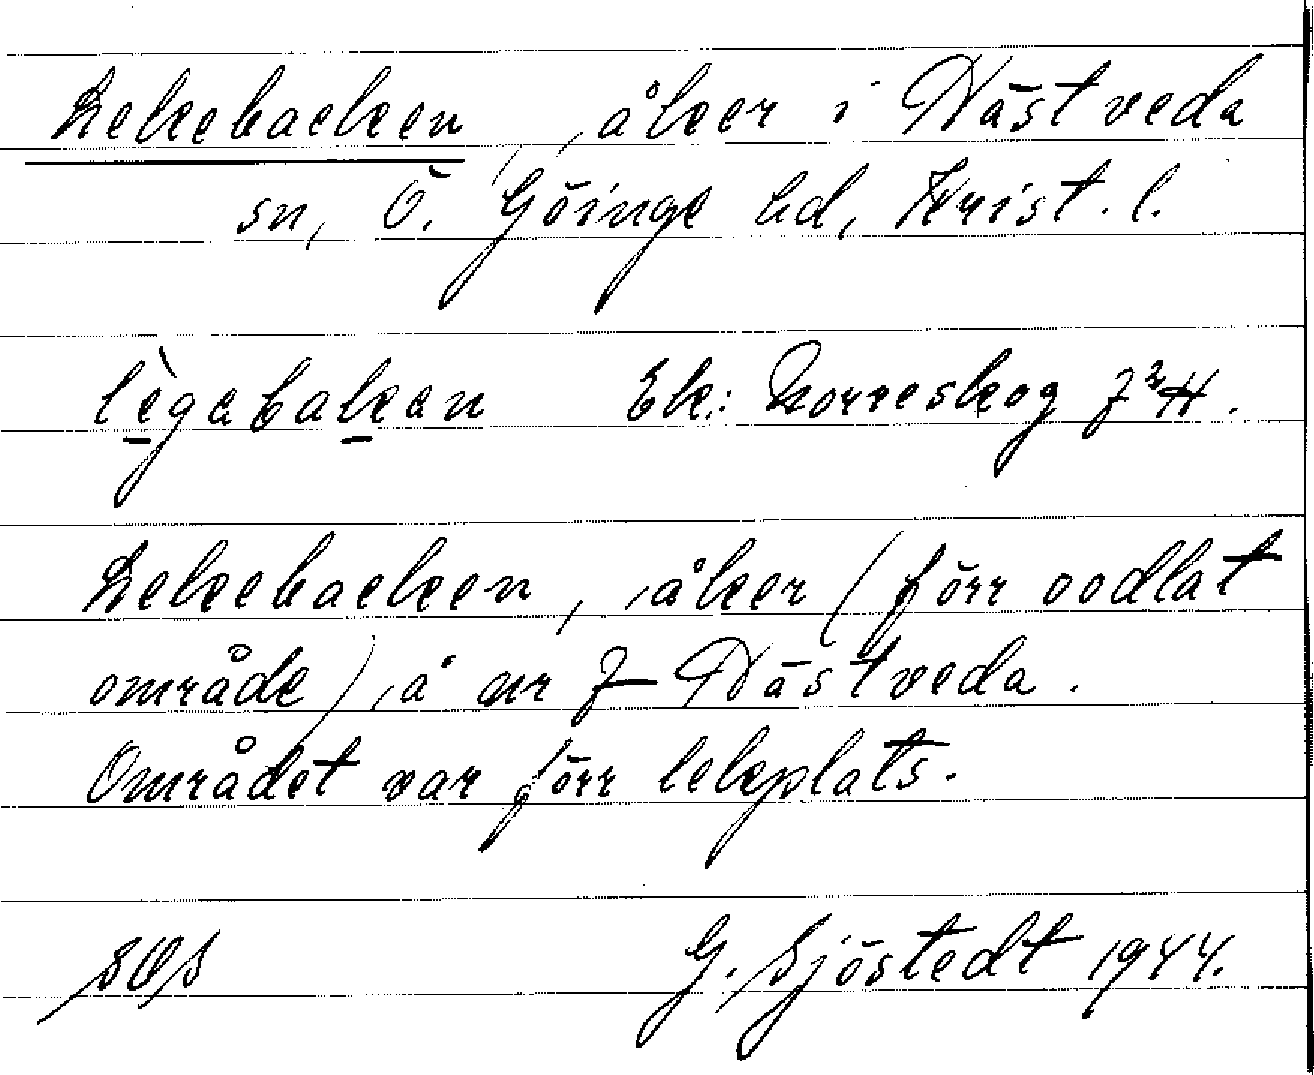 Lekebacken, åker i Västveda
sn, Ö. Göinge hd, Krist. l.
lègabakan Ek: Norreskog 7²H.
Lekebacken, åker (förr oodlat
område), å nr 7 Västveda.
Området var förr lekplats.
G. Sjöstedt 1944.